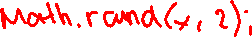 Math.rand(x, 2);